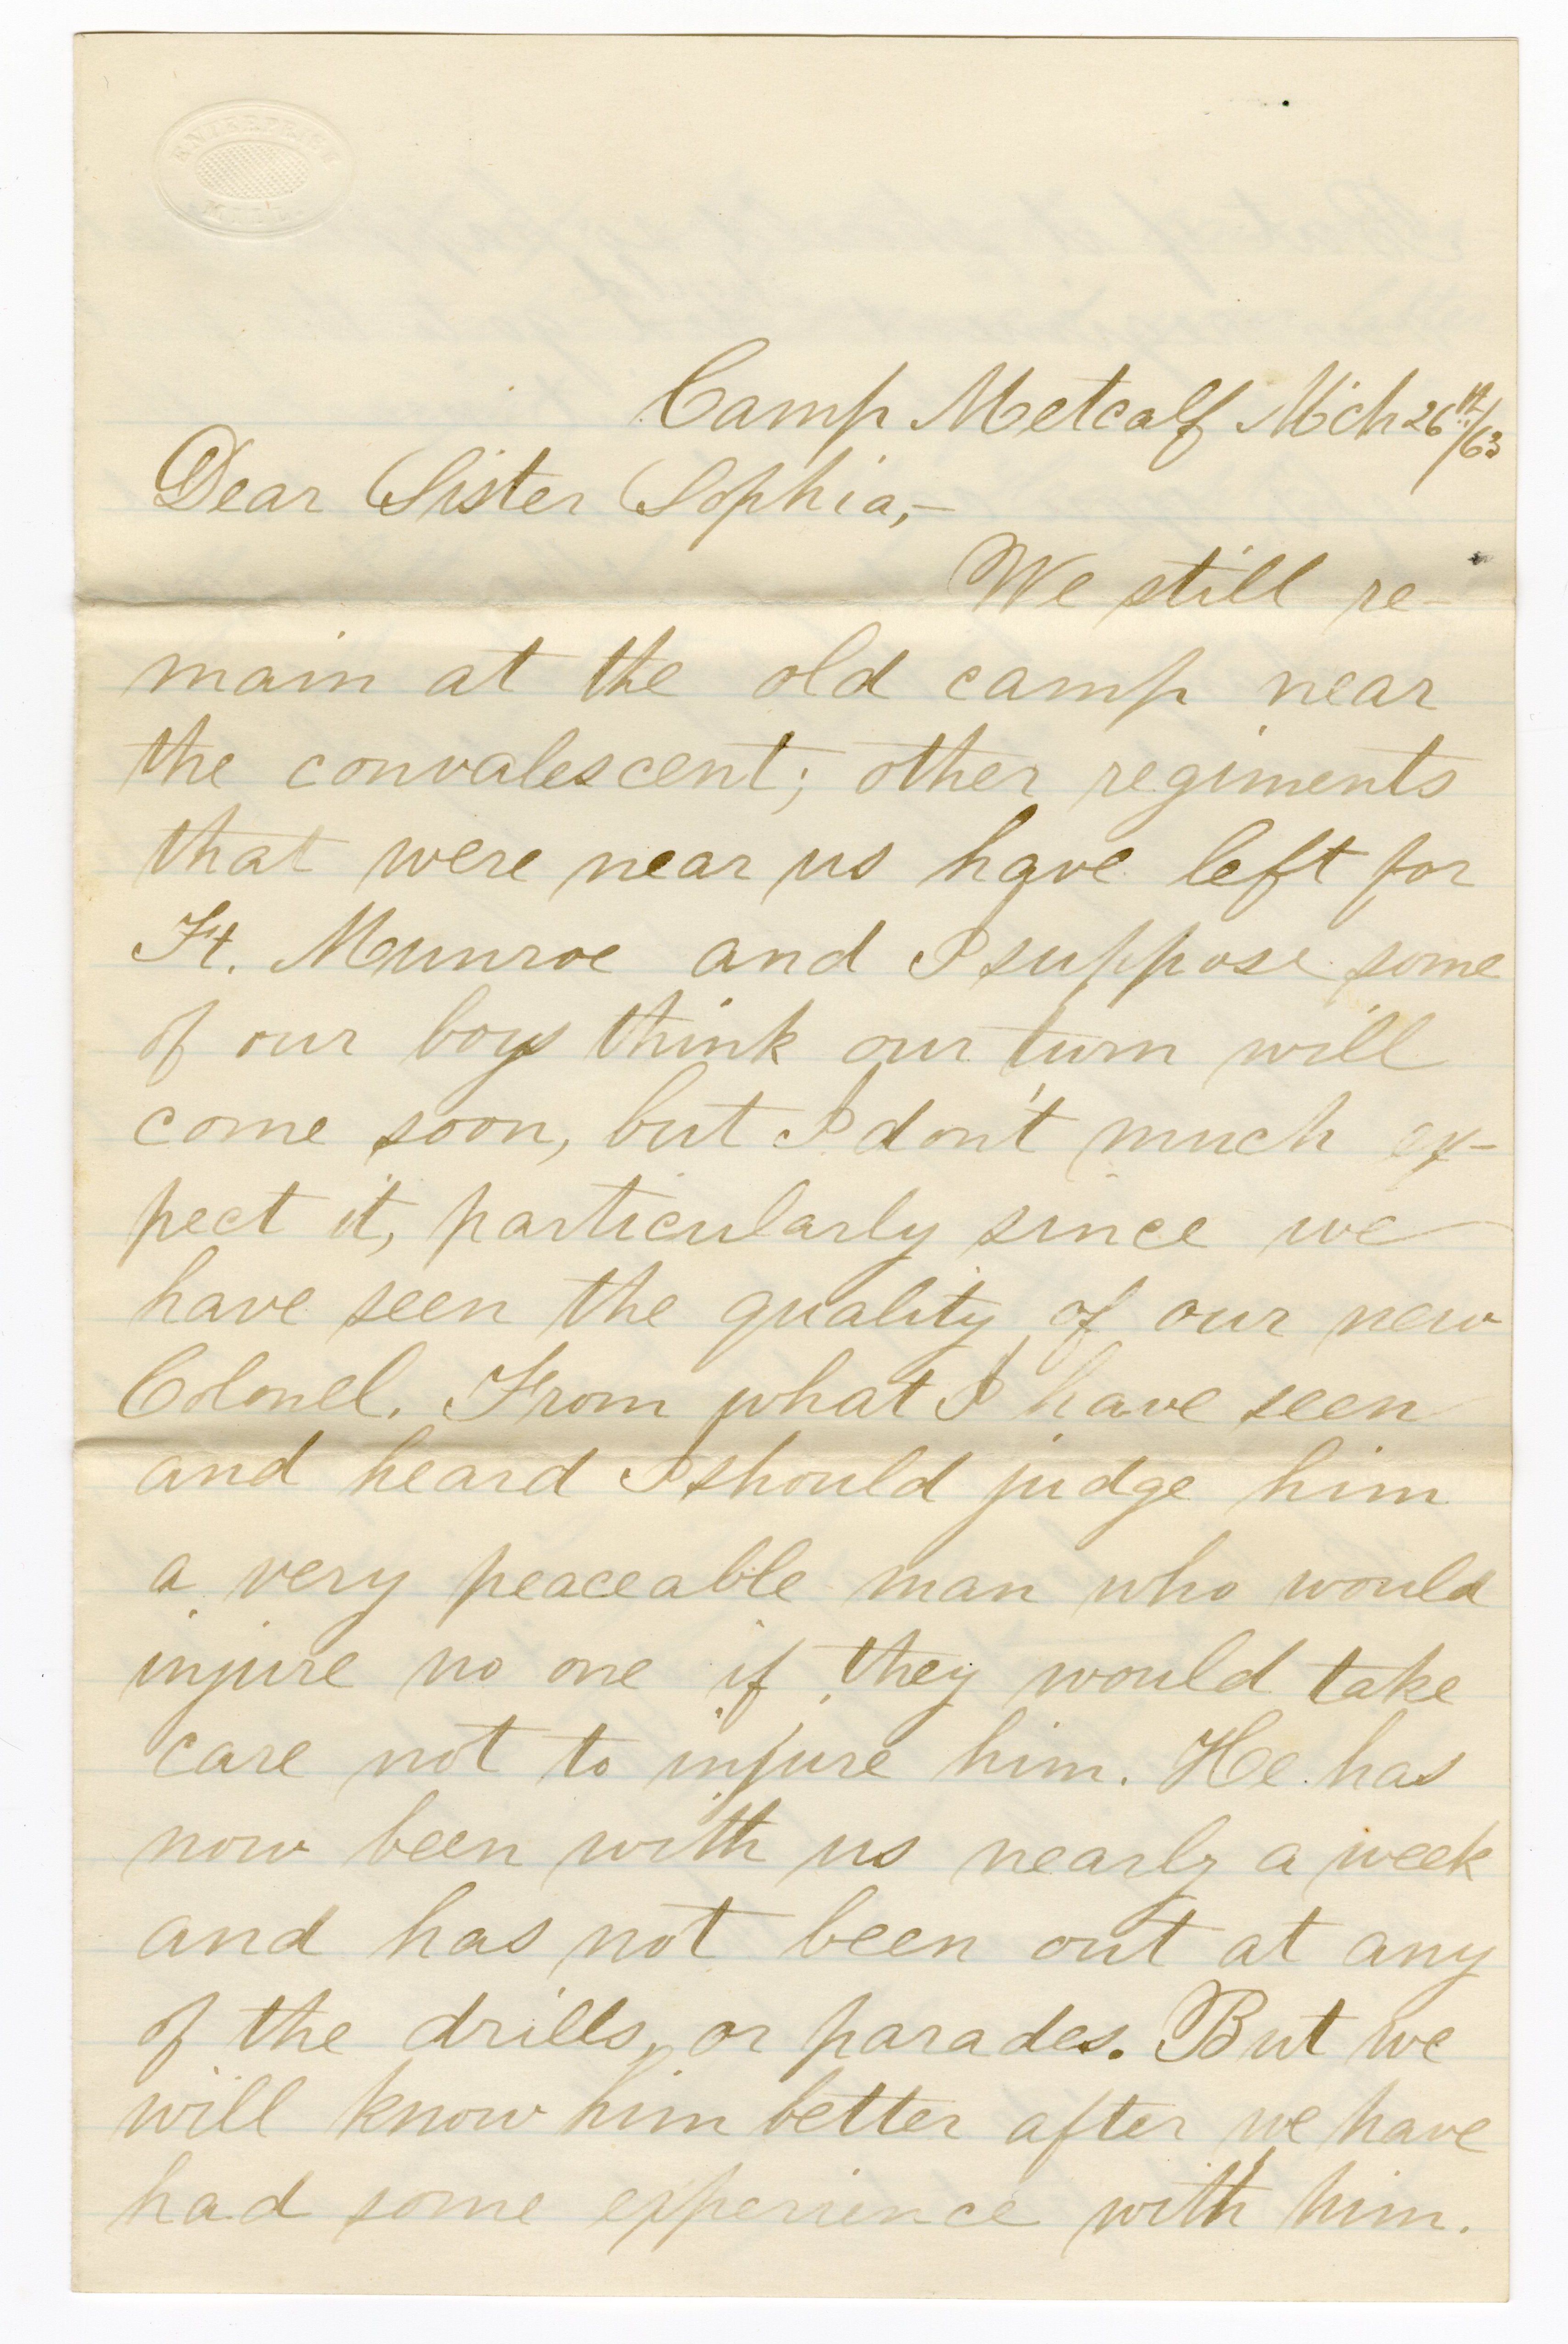 ENTERPRISE
MILLS
Camp Metcalf Mch 26th/63
Dear Sister Sophia,—
We still re-
main at the old camp near
the convalescent; other regiments
that were near us have left for
Ft. Munroe and I suppose some
of our boys think our turn will
come soon, but I don't much ex-
pect it, particularly since we
have seen the quality of our new
Colonel. From what I have seen
and heard I should judge him
a very peaceable man who would
injure no one if they would take
care not to injure him. He has
now been with us nearly a week
and has not been out at any
of the drills, or parades. But we
will know him better after we have
had some experience with him.